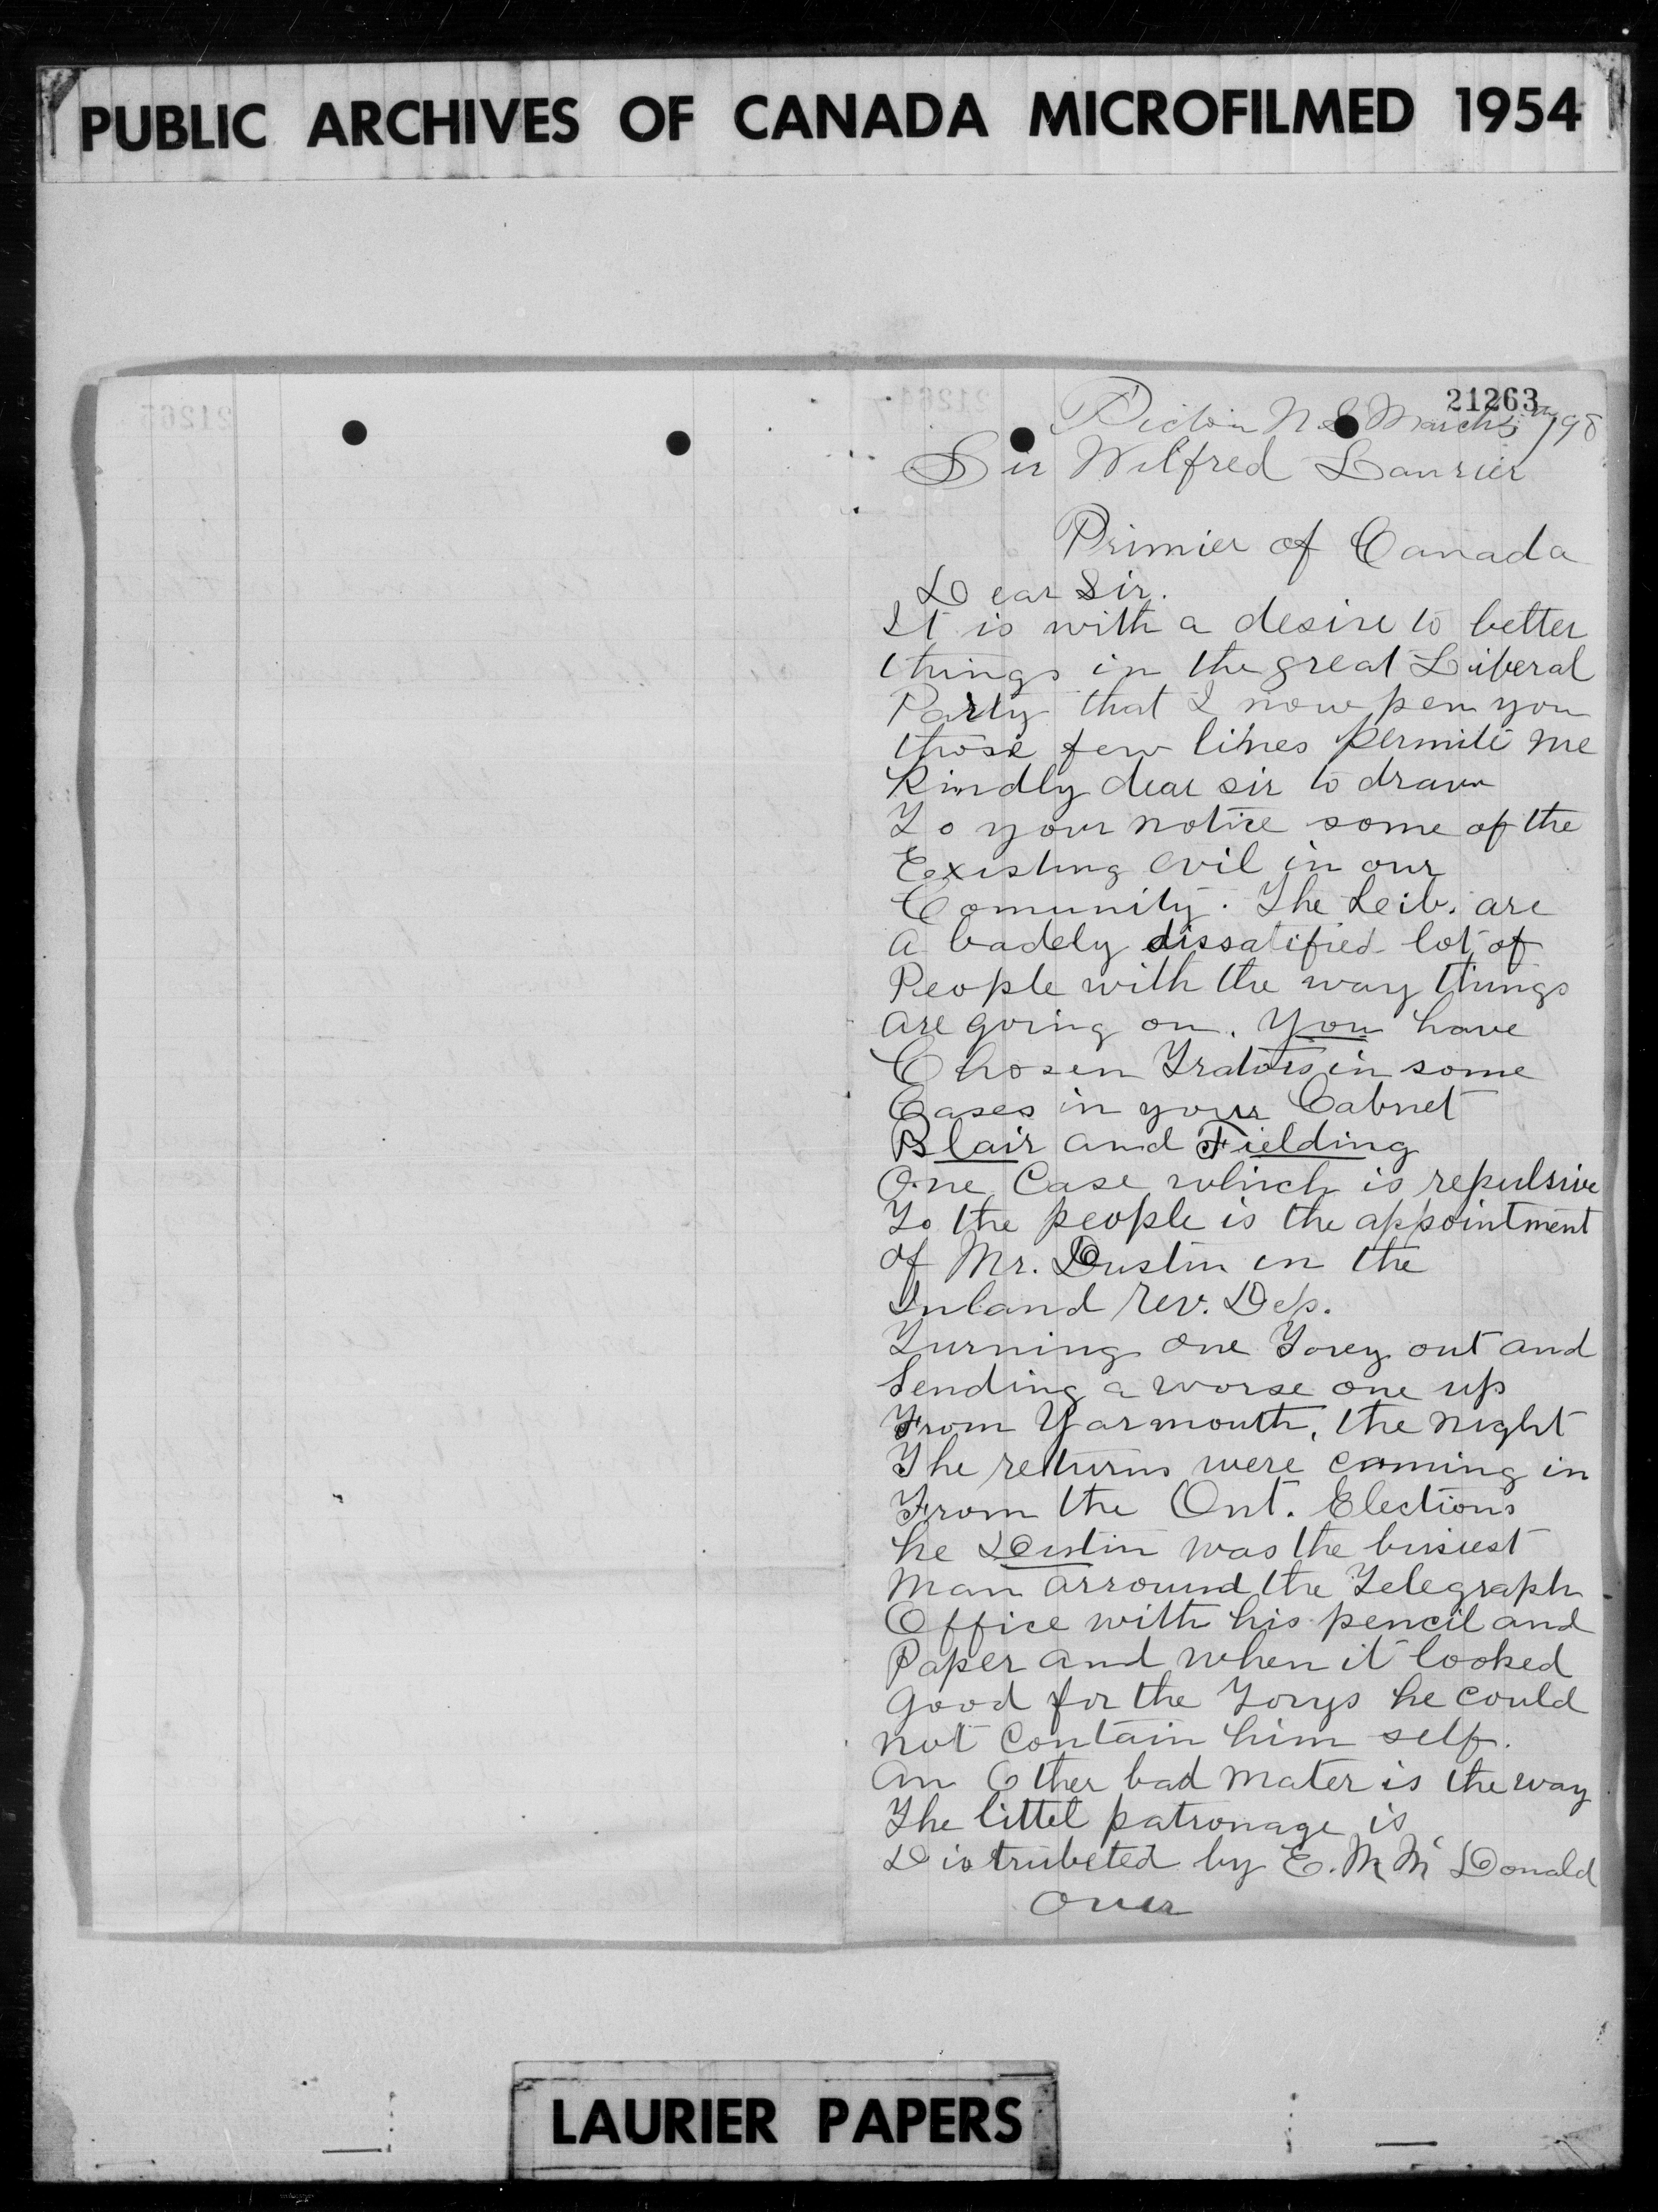 PUBLIC ARCHIVES OF CANADA MICROFILMED 1954
21263
Pictou N.S. March 5th /98
Sir Wilfred Laurier
Primier of Canada
Dear Sir.
It is with a desire to better
things in the great Liberal
Party that I now pen you
those few lines permite me
Kindly dear sir to draw
To your notice some of the
Existing evil in our
Comunity. The Leib. are
a badely dissatified lot of
People with the way things
are going on. You have
Chosen Trators in some
Cases in your Cabnet
Blair and Fielding
One Case which is repulsive
To the people is the appointment
of Mr. Dustin in the
Inland rev. Dep.
Turning one Torey out and
Sending a worse one up
From Yarmouth, the night
The returns were coming in
From the Ont. Elections
he Dustin was the busiest
man arround the Telegraph
Office with his pencil and
Paper and when it looked
good for the Torys he could
not contain him self.
An Other bad mater is the way
The littel patronage is
Distrubeted by E. M. Mc Donald
Over
LAURIER PAPERS